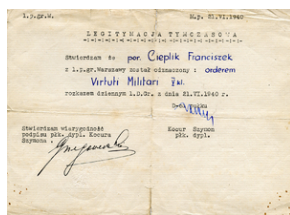 1.p.gr.W.
M.p. 21.VI.1940
LEGITYMACJA TYMCZASOWA
Stwierdzam że por. Cieplik Franciszek
z 1.p.gr.Warszawy został odznaczony : orderem
Virtuti Militari
rozkazem dziennym 1.D.Gr. z dnia 21.VI.1940 r.
Stwierdzam wiarygodność
podpisu płk. dypl. Kocura
Szymona :
Kocur Szymon
płk. dypl.